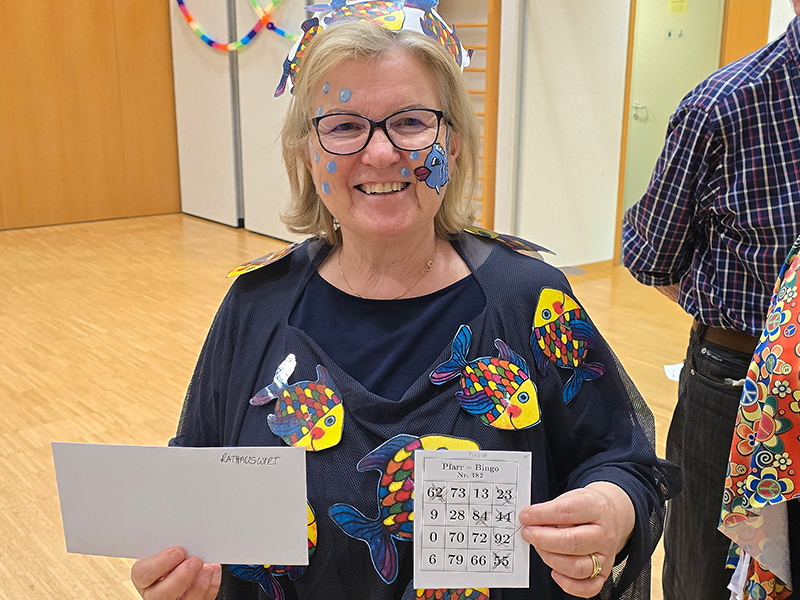 RATHAUSWIRT
Pfarr – Bingo
Nr. 182
62 73 13 23
9 28 84 44
0 70 72 92
6 79 66 55